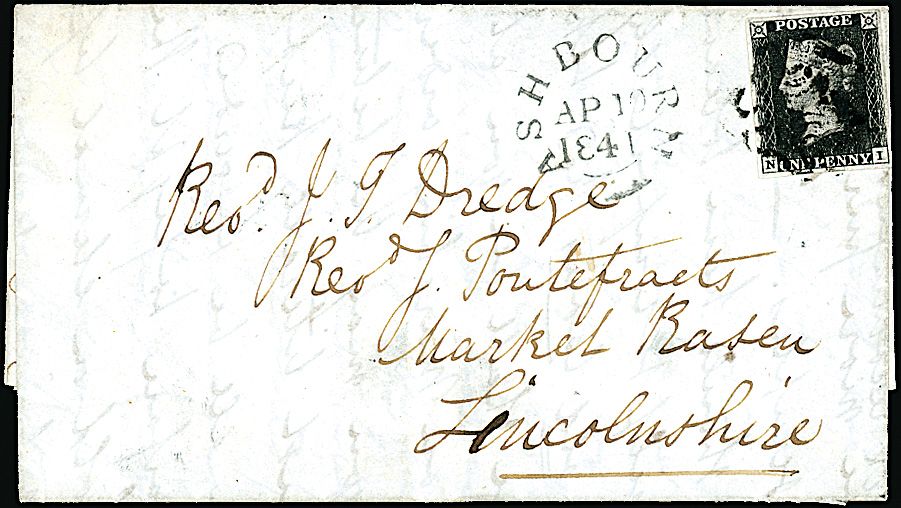 POSTAGE
ASHBOURN
AP 10
1841
N ONE PENNY I
Revd. J. T. Dredge
Revd J. Pontefracts
Market Rasen
Lincolnshire